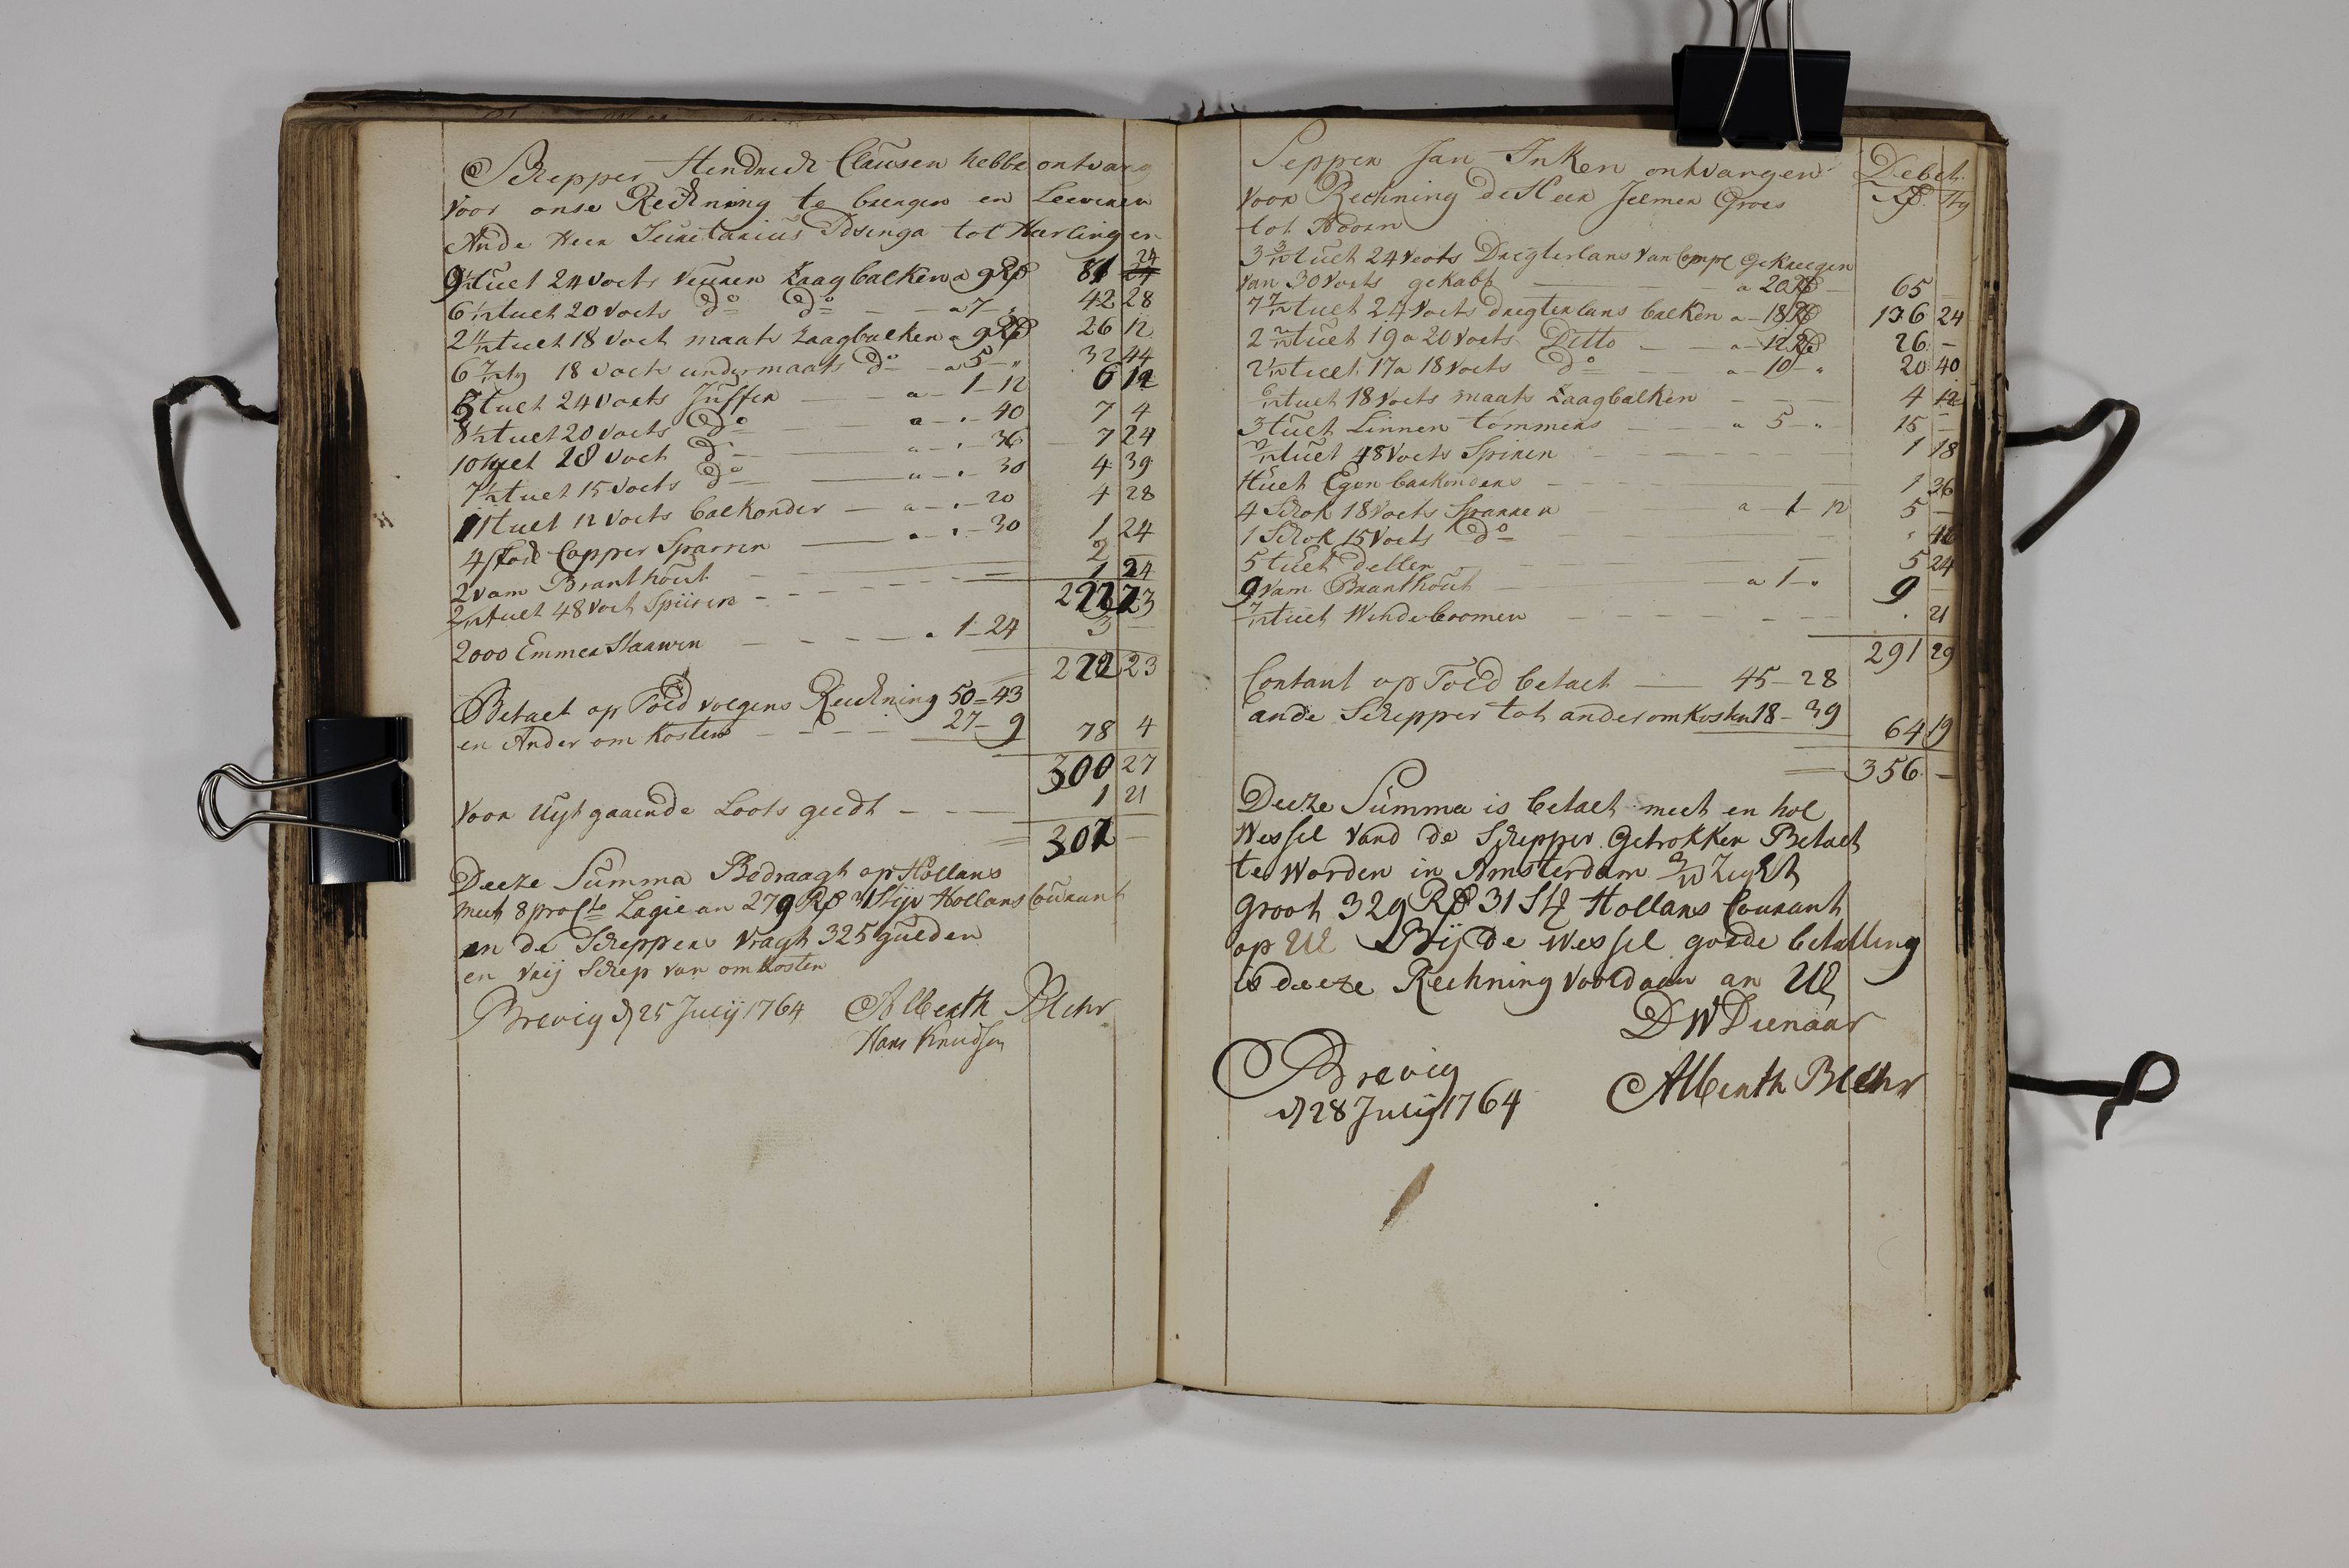 Schepper Hendrich Clausen hebbe ontvang
voor onse Rechning te brengen en Leeveren
Ande Heer Secretarius Idsenga tot Harlingen
9 1/12 tuet 24 voets veuren Zaagbalken a 9 Rd 81 24
6 1/12 tuet 20 voets do do — a 7 — " 42 28
2 11/12 tuet 18 voet maats Zaagbalken a 9 Rd 26 12
6 7/12 ty 18 voets undermaats do — a 5 — " 32 44
5 tuet 24 voets Juffer — a — 1 — 12 6 12
8 1/2 tuet 20 voets do — a — . — 40 7 4
10 tuet 18 voet do — a — . — 36 7 24
7 1/2 tuet 15 voets do — a — . — 30 4 39
11 tuet 12 voets balkonder — a — . — 20 4 28
4 Capper Sparren — . — . — 30 1 24
2 vam Branthout — 2 —
2/12 tuet 48 voet Spiiren — 1 24
23
2000 Emmer Staaven — . 1 — 24 3 —
222 23
Betaet op Told volgens Rechning 50 = 43
en Ander omkosten — 27 — 9 78 4
300 27
voor uytgaaende Loots geedt — 1 21
302 —
Deeze Summa Bedraagt op Hollans
met 8 pro Cto Lagie an 279 Rd 31 Styv Hollans Courant
en de Scheppers vragt 325 gulden
en vrij Schep van omkosten
Brevig d 25 Julij 1764 Alberth Blehr
Hans Knudsen
Sepper Jan Inken ontvangen Debet.
voor Rechning de Heer Jelmer Groes Rd. Sty
tot Hoorn
3 3/12 tuet 24 voets Dregterlans van Compe gekreegen
van 30 voets gekabt — a 20 Rd — 65
7 7/12 tuet 24 voets dregterlans balken a — 18 Rd 136 24
2 2/12 tuet 19 a 20 voets Ditto — a — 12 Rd 26 —
2 1/12 tuet 17 a 18 voets do — a — 10 — " 20 40
6/12 tuet 18 voets maats Zaagbalken — 4 12
3 tuet Linnen tommers — a 5 — " 15 —
2/12 tuet 48 voets Spiren — 1 18
tuet Egen baekonders — 1 36
4 Schok 18 voets Sparren — a 1 — 12 5 —
1 Schok 15 voets do — .
5 tuet dellen — 5 24
9 vam Branthout — a 1 — . 9 —
7/12 tuet Windeboomen — . 21
291 29
Contant op Told betaelt — 45 — 28
ande Schepper tot ander omkosten 18 — 39 64 19
356 —
Deeze Summa is betaelt meet en hol
Wessel vand de Schepper getrokken Betaelt
te worden in Amsterdam
groot 329 Rd 31 Sty Hollans Courant
op Ul Bij de Wessel goede betalling
is deeze Rechning voldaan an Ul
D W Dienaar
Brevig
d 28 Julij 1764 Alberth Blehr